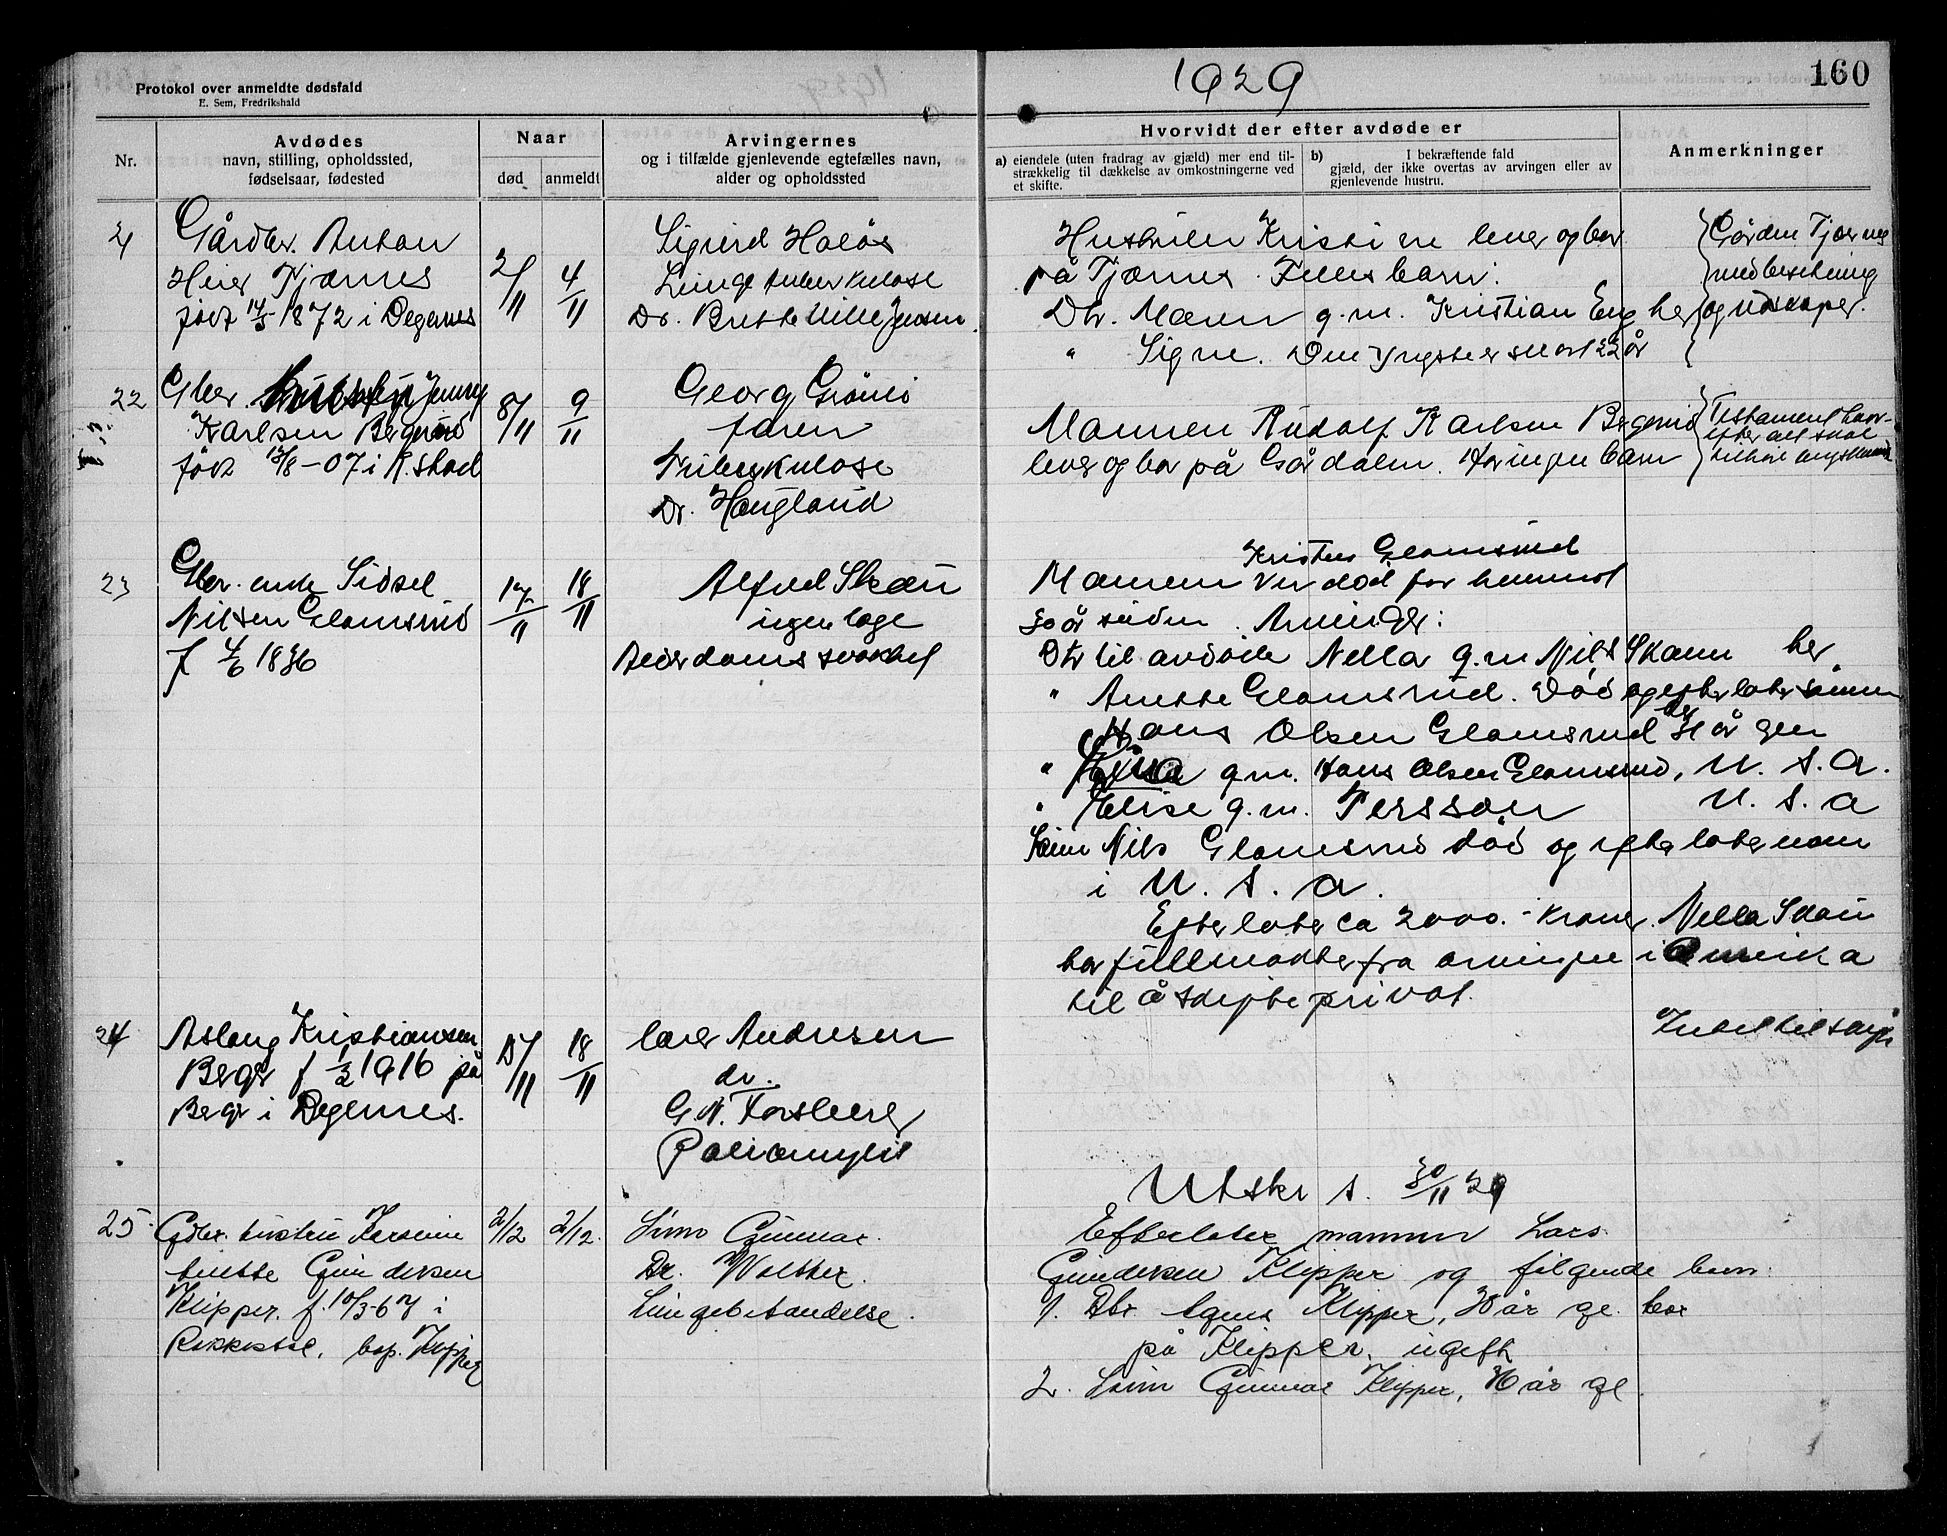 Protokol over anmeldte dødsfald
E. Sem, Fredrikshald
1929
160
Nr.
Avdødes
navn, stilling, opholdssted,
fødselsaar, fødested
Naar
død
anmeldt
Arvingernes
og i tilfælde gjenlevende egtefælles navn,
alder og opholdssted
Hvorvidt der efter avdøde er
a) eiendele (uten fradrag av gjæld) mer end til-
strækkelig til dækkelse av omkostningerne ved
et skifte.
b) I bekræftende fald
gjæld, der ikke overtas av arvingen eller av
gjenlevende hustru.
Anmerkninger
Gårdbr. Anton
Heier Tjærnes
født 14/5 1872 i Degernes
2/11
4/11
Sigurd Holøs
Lungetuberkulose
Dr. Jensen
Hustruen Kristine lever og bor
på Tjærnes. Felles barn:
Dtr. Maren g.m. Kristian Eng her
" Signe. Den yngste er snart 22 år
Gården Tjærnes
med besetning
og redskaper.
22
Gbr. Jenny
Karlsen Bergerud
født 13/8-07 i K.stad
8/11
9/11
Georg
faren
Tuberkulose
Dr. Haugland
Mannen Rudolf Karlsen Bergerud
lever og bor på Gårdalen. Har ingen barn
Testament hvor-
efter alt skal
23
Gbr. enke Sidsel
Nilsen Glomsrud
f 4/6 1836
17/11
18/11
Alfred Skau
ingen læge
Alderdomssvakhet
Kristen Glomsrud
Mannen er død for henimot
30 år siden. Arvinger:
Dtr til avdøde Nella g.m Nils Skaun her
" Anette Glomsrud. Død og efterlater sønnen
Hans Olsen Glomsrud her 31 år gen
" g.m. Hans Olsen Glomsrud, U. S. A.
" Elise g.m. Persson U. S. A
Sønn Nils Glomsrud død og efterlater
i U. S. A.
Efterlater ca 2000.- kroner. Nella Skau
har fullmakter fra arvingene i Amerika
til å skifte privat.
24
Aslaug Kristiansen
Berger f 1/2 1916 på
Berger i Degernes.
15/11
18/11
lærer Andresen
dr.
G. N. Forsberg
Poliomyelit
Intet til skifte
Utskr s. 30/11 29
25
Gdbr. hustru Karoline
Anette Gundersen
Klipper. f. 10/3-67 i
Rakkestad. bop. Klipper
2/12
2/12.
Sønn Gunnar.
Dr. Walther.
Lungebetændelse.
Efterlater mannen Lars
Gundersen Klipper og følgende barn.
1. Dtr Agnes Klipper, år gl. bor
på Klipper, ugift
2. Sønn Gunnar Klipper, år gl.